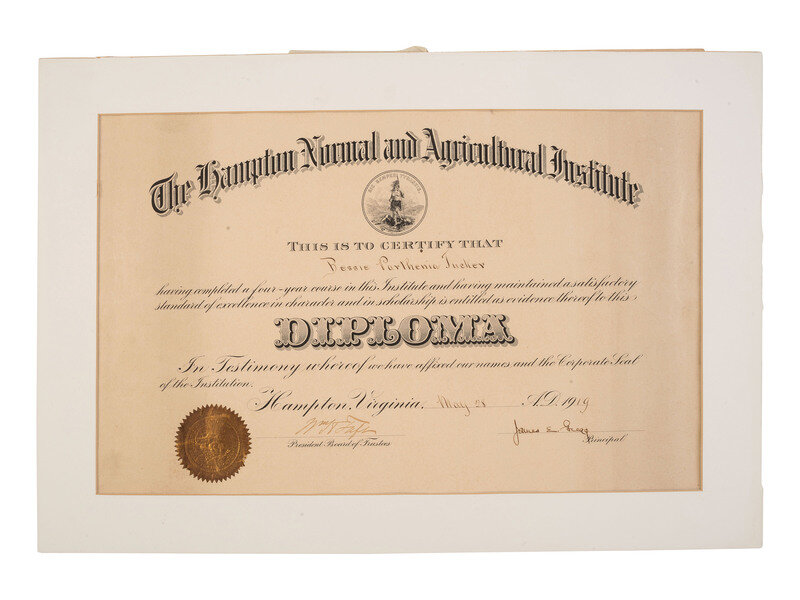 The Hampton Normal and Agricultural Institute
SIC SEMPER TYRANNIS
THIS IS TO CERTIFY THAT
Bessie Parthenia Tucker
having completed a four-year course in this Institute and having maintained a satisfactory
standard of excellence in character and in scholarship is entitled as evidence thereof to this
DIPLOMA
In Testimony whereof we have affixed our names and the Corporate Seal
of the Institution.
Hampton, Virginia, May 28 A.D. 1919
Wm H Taft James E. Gregg
President Board of Trustees Principal